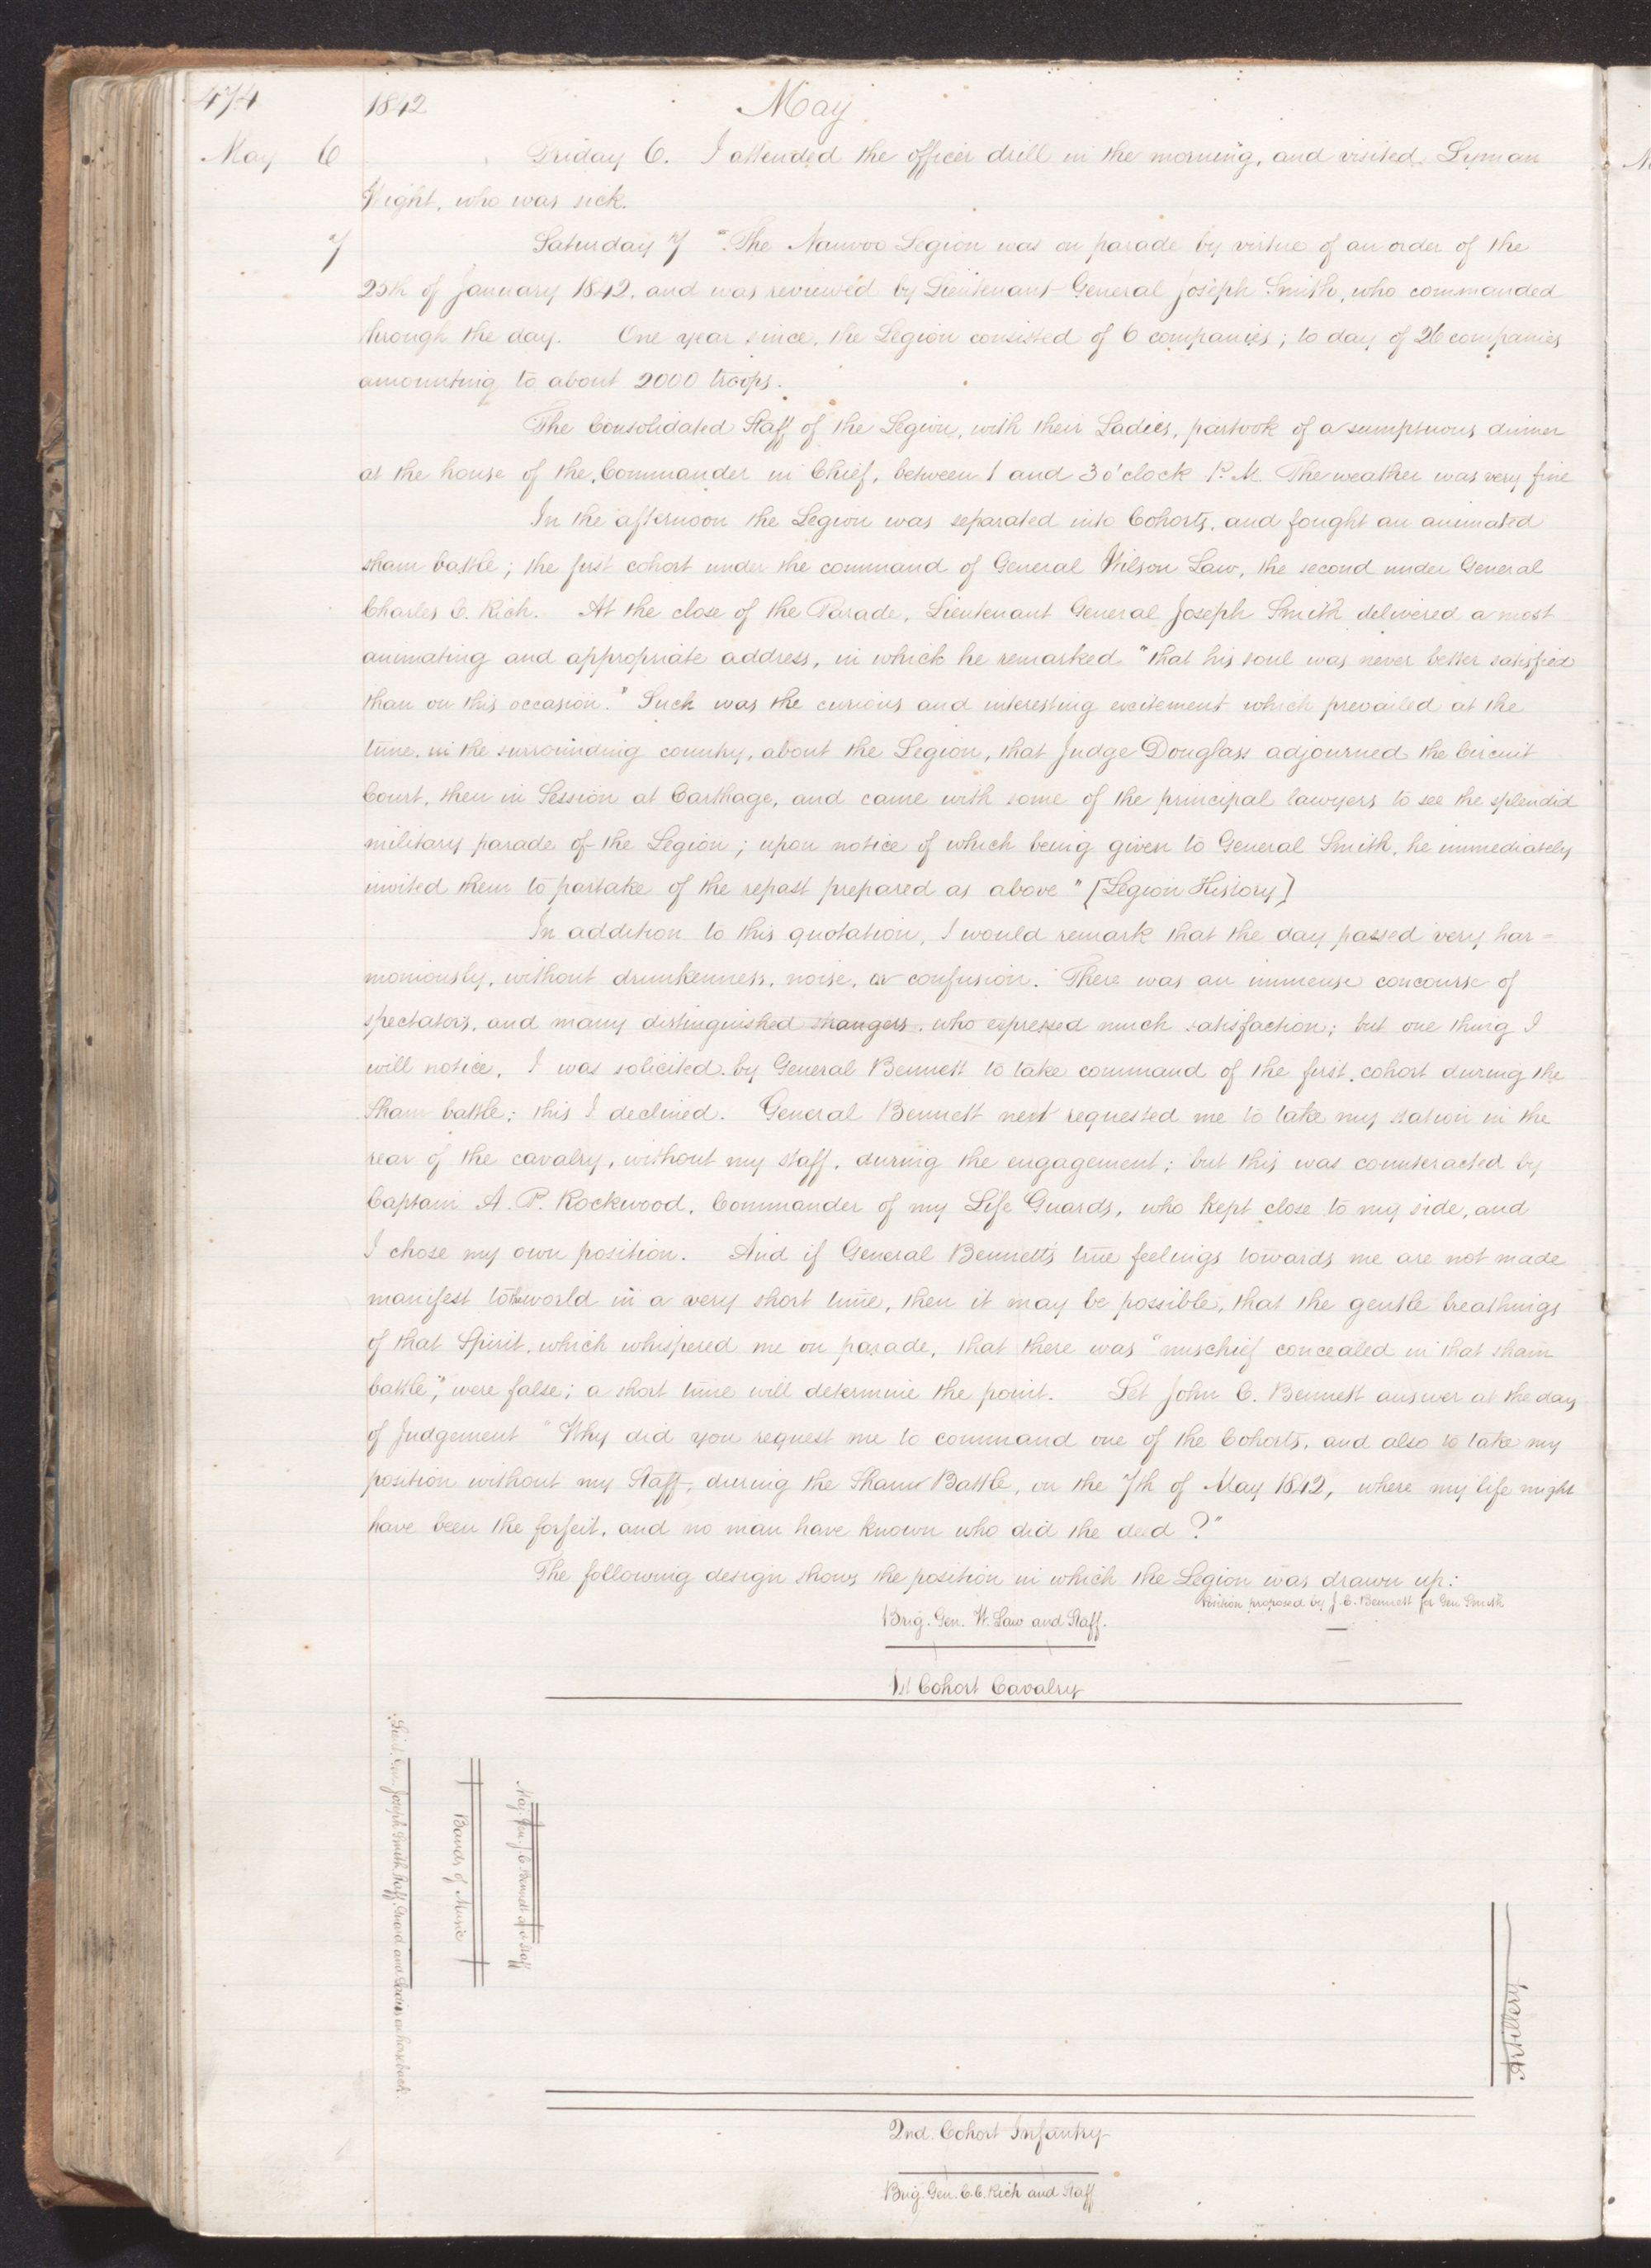 474 1842 May
May 6 Friday 6. I attended the officer drill in the morning, and visited Lyman
Wight, who was sick.
7 Saturday 7 "The Nauvoo Legion was on parade by virtue of an order of the
25th of January 1842, and was reviewed by Lieutenant-General Joseph Smith, who commanded
through the day. One year since, the Legion consisted of 6 companies; to day of 26 companies
amounting to about 2000 troops.
The Consolidated Staff of the Legion, with their Ladies, partook of a sumptuous dinner
at the house of the Commander in Chief, between 1 and 3 o'clock P.M. The weather was very fine
In the afternoon the Legion was separated into Cohorts, and fought an animated
sham battle; the first cohort under the command of General Wilson Law, the second under General
Charles C. Rich. At the close of the Parade, Lieutenant General Joseph Smith delivered a most
animating and appropriate address, in which he remarked "that his soul was never better satisfied
than on this occasion." Such was the curious and interesting excitement which prevailed at the
time, in the surrounding country, about the Legion, that Judge Douglass adjourned the Circuit
Court, then in Session at Carthage, and came with some of the principal lawyers to see the splendid
military parade of the Legion; upon notice of which being given to General Smith, he immediately
invited them to partake of the repast prepared as above" [Legion History]
In addition to this quotation, I would remark that the day passed very har=
moniously, without drunkenness, noise, or confusion. There was an immense concourse of
spectators, and many distinguished strangers, who expressed much satisfaction; but one thing I
will notice, I was solicited by General Bennett to take command of the first cohort during the
Sham battle; this I declined. General Bennett next requested me to take my station in the
rear of the cavalry, without my staff, during the engagement; but this was counteracted by
Captain A. P. Rockwood, Commander of my Life Guards, who kept close to my side, and
I chose my own position. And if General Bennett's true feelings towards me are not made
manifest to the world in a very short time, then it may be possible, that the gentle breathings
of that Spirit, which whispered me on parade, that there was "mischief concealed in that sham
battle", were false; a short time will determine the point. Let John C. Bennett answer at the day
of Judgement "Why did you request me to command one of the Cohorts, and also to take my
position without my Staff, during the Sham Battle, on the 7th of May 1842, where my life might
have been the forfeit, and no man have known who did the deed?"
The following design shows the position in which the Legion was drawn up:
Position proposed by J. C. Bennett for Gen Smith
Brig. Gen. W. Law and Staff.
1st Cohort Cavalry
Lieut. Gen. Joseph Smith Staff, Guard and Ladies on horseback.
Bands of Music
Maj. Gen. J. C. Bennett and Staff
Artillery
2nd. Cohort Infantry
Brig. Gen. C. C. Rich and Staff